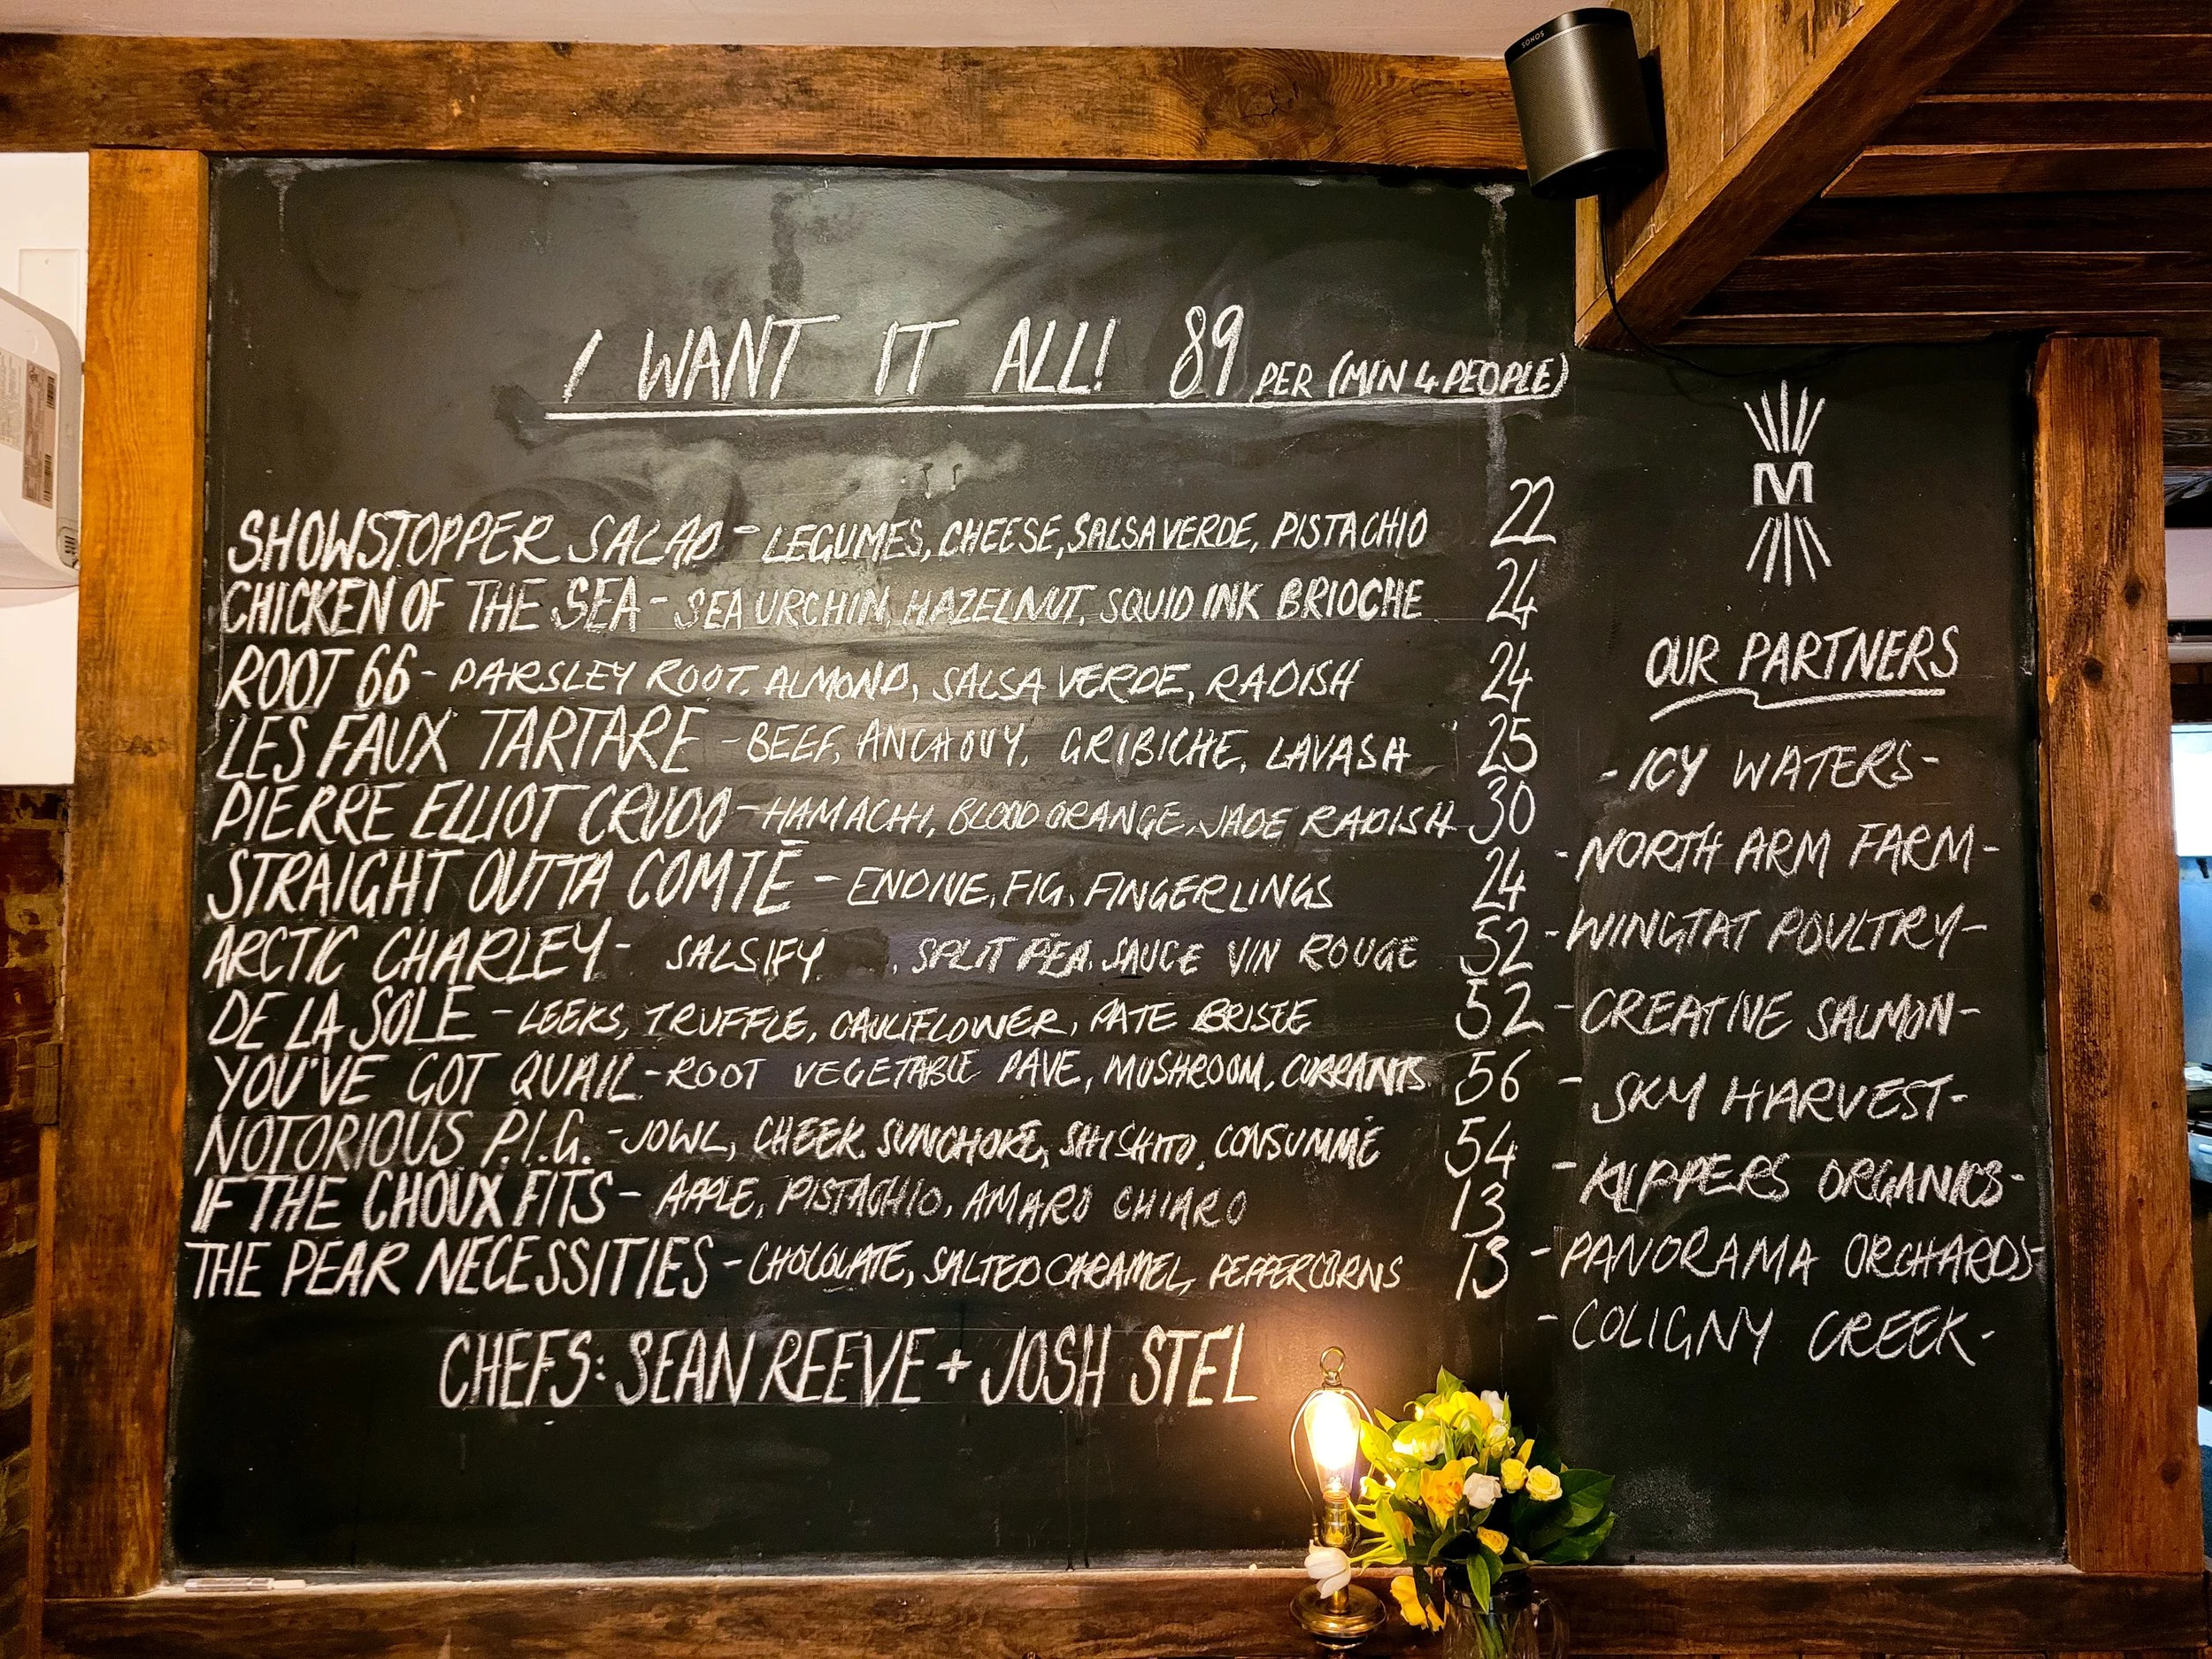 SONOS
I WANT IT ALL! 89 PER (MIN 4 PEOPLE)
SHOWSTOPPER SALAD - LEGUMES, CHEESE, SALSA VERDE, PISTACHIO 22
CHICKEN OF THE SEA - SEA URCHIN, HAZELNUT, SQUID INK BRIOCHE 24
ROOT 66 - PARSLEY ROOT, ALMOND, SALSA VERDE, RADISH 24
LES FAUX TARTARE - BEEF, ANCHOVY, GRIBICHE, LAVASH 25
PIERRE ELLIOT CRUDO - HAMACHI, BLOOD ORANGE, JADE RADISH 30
STRAIGHT OUTTA COMTÉ - ENDIVE, FIG, FINGERLINGS 24
ARCTIC CHARLEY - SALSIFY, SPLIT PEA, SAUCE VIN ROUGE 52
DE LA SOLE - LEEKS, TRUFFLE, CAULIFLOWER, PATE BRISEE 52
YOU'VE GOT QUAIL - ROOT VEGETABLE PAVE, MUSHROOM, CURRANTS 56
NOTORIOUS P.I.G. - JOWL, CHEEK, SUNCHOKE, SHISHITO, CONSUMMÉ 54
IF THE CHOUX FITS - APPLE, PISTACHIO, AMARO CHIARO 13
THE PEAR NECESSITIES - CHOCOLATE, SALTED CARAMEL, PEPPERCORNS 13
CHEFS: SEAN REEVE + JOSH STEL
M
OUR PARTNERS
- ICY WATERS -
- NORTH ARM FARM -
- WINGTAT POULTRY -
- CREATIVE SALMON -
- SKY HARVEST -
- KLIPPERS ORGANICS -
- PANORAMA ORCHARDS -
- COLIGNY CREEK -